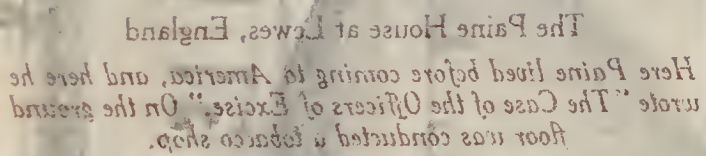 The Paine House at Lewes, England
Here Paine lived before coming to America, and here he
wrote "The Case of the Officers of Excise." On the ground
floor was conducted a tobacco shop.